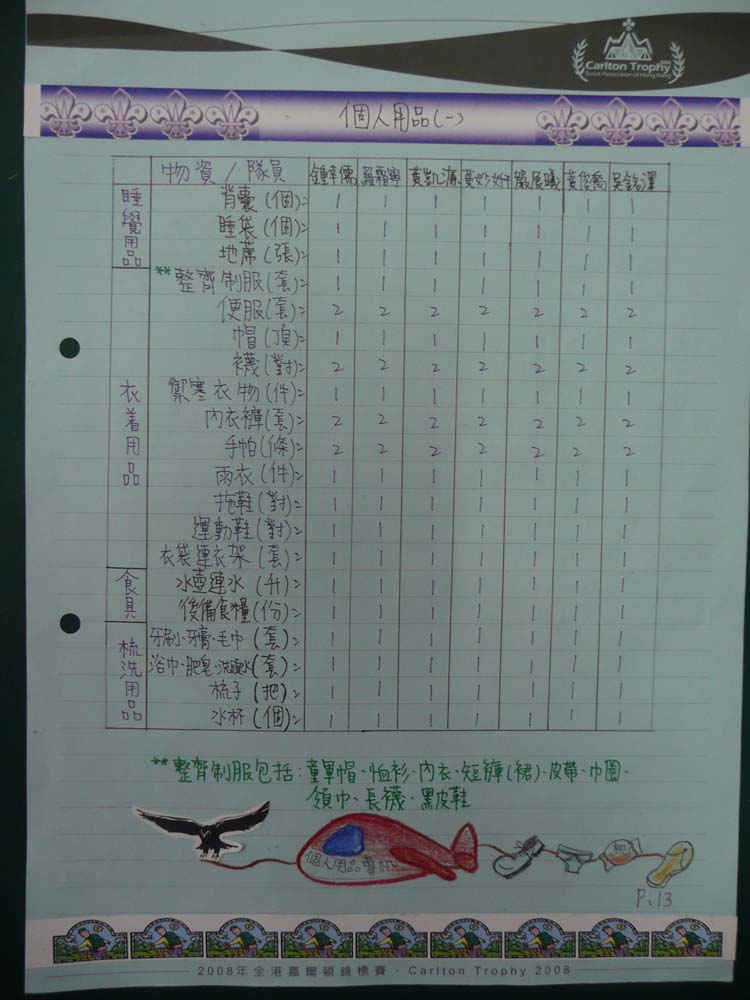 Carlton Trophy
Scout Association of Hong Kong
個人用品(一)
物資/隊員 鍾聿儒 羅霜寧 黃凱濂 黃妙妍 嚴展曦 黃俊喬 吳銘澤
睡覺用品
背囊(個): 1 1 1 1 1 1 1
睡袋(個): 1 1 1 1 1 1 1
地蓆(張): 1 1 1 1 1 1 1
衣着用品
**整齊制服(套): 1 1 1 1 1 1 1
便服(套): 2 2 2 2 2 2 2
帽(頂): 1 1 1 1 1 1 1
襪(對): 2 2 2 2 2 2 2
禦寒衣物(件): 1 1 1 1 1 1 1
內衣褲(套): 2 2 2 2 2 2 2
手帕(條): 2 2 2 2 2 2 2
雨衣(件): 1 1 1 1 1 1 1
拖鞋(對): 1 1 1 1 1 1 1
運動鞋(對): 1 1 1 1 1 1 1
衣袋連衣架(套): 1 1 1 1 1 1 1
食具
水壺連水(升): 1 1 1 1 1 1 1
後備食糧(份): 1 1 1 1 1 1 1
梳洗用品
牙刷、牙膏、毛巾(套): 1 1 1 1 1 1 1
浴巾、肥皂、洗頭水(套): 1 1 1 1 1 1 1
梳子(把): 1 1 1 1 1 1 1
水杯(個): 1 1 1 1 1 1 1
**整齊制服包括:童軍帽、恤衫、內衣、短褲(裙)、皮帶、巾圈、
領巾、長襪、黑皮鞋
個人用品專機
P.13
2008年全港嘉爾頓錦標賽・Carlton Trophy 2008